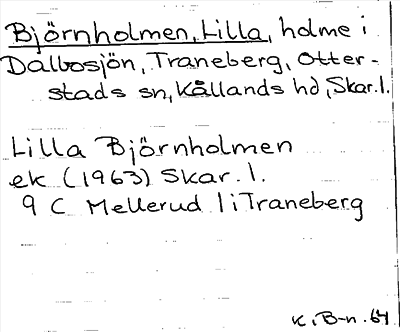 Björnholmen, Lilla, holme i
Dalbosjön, Traneberg, Otter-
stads sn, Kållands hd, Skar.l.
Lilla Björnholmen
ek (1963) Skar. l.
9 C Mellerud l i Traneberg
K. B-n. 64